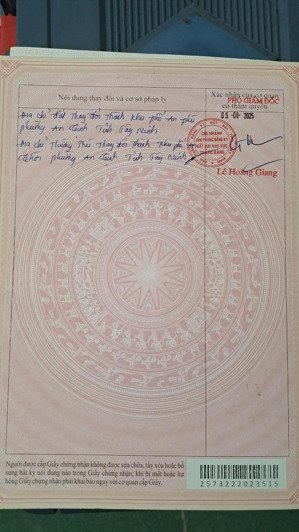 Nội dung thay đổi và cơ sở pháp lý
Xác nhận của cơ quan
có thẩm quyền
PHÓ GIÁM ĐỐC
Địa chỉ đất thay đổi thành khu phố An phú
phường An Tịnh Tỉnh Tây Ninh
05-08-2025
Địa chỉ Thường Trú Thay đổi thành khu phố An
Thới phường An Tịnh Tỉnh Tây Ninh
CHI NHÁNH
VĂN PHÒNG ĐĂNG KÝ
ĐẤT ĐAI KHU VỰC
TRẢNG BÀNG
Lê Hoàng Giang
Người được cấp Giấy chứng nhận không được sửa chữa, tẩy xóa hoặc bổ
sung bất kỳ nội dung nào trong Giấy chứng nhận; khi bị mất hoặc hư
hỏng Giấy chứng nhận phải khai báo ngay với cơ quan cấp Giấy.
2573222023515